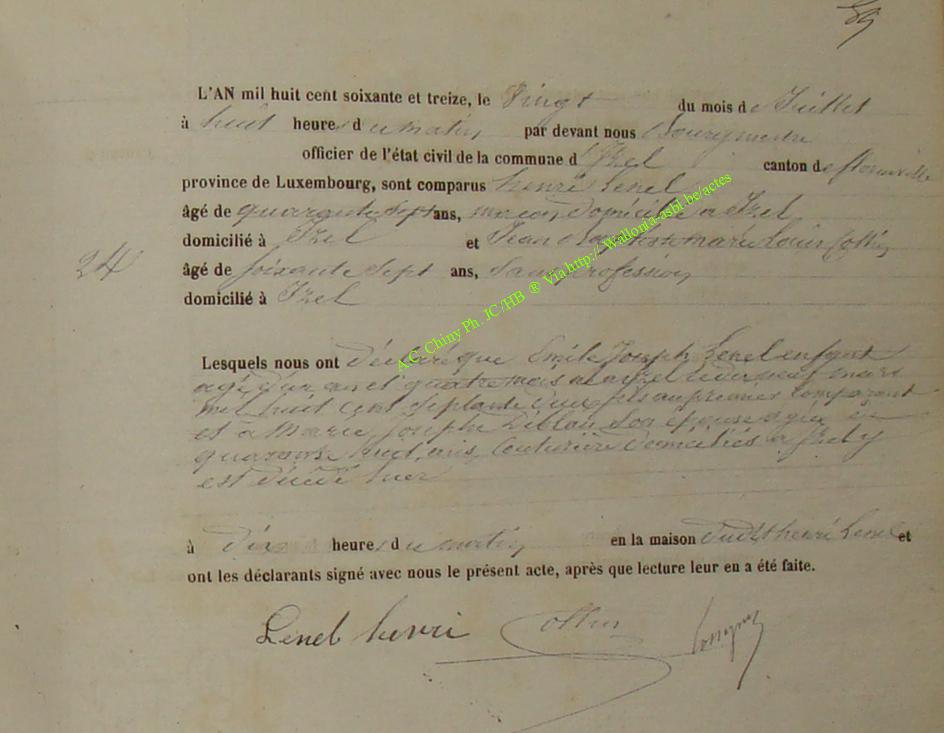 89
L'AN mil huit cent soixante et treize, le Vingt du mois de Juillet
à huit heures du matin par devant nous
officier de l'état civil de la commune d'Izel canton de florenville
province de Luxembourg, sont comparus henri Lenel
âgé de quarante Sept ans, maçon domicilié a Izel
domicilié à Izel et Jean marie Louis Collin
24
âgé de soixante Sept ans, Sans profession
domicilié à Izel
Lesquels nous ont déclaré que Emile Joseph Lenel enfant
agé d'un an et quatre mois né a izel le dix neuf mars
mil huit cent septante deux fils au premier Comparant
et à Marie Joseph son épouse agée de
quarante ans, Couturière domiciliés a Izel y
est décédé hier
à dix heures du matin en la maison dudit henri Lenel et
ont les déclarants signé avec nous le présent acte, après que lecture leur en a été faite.
Lenel henri Collin
A.C. Chiny Ph. JC/HB ® Via http://Wallonia-asbl.be/actes